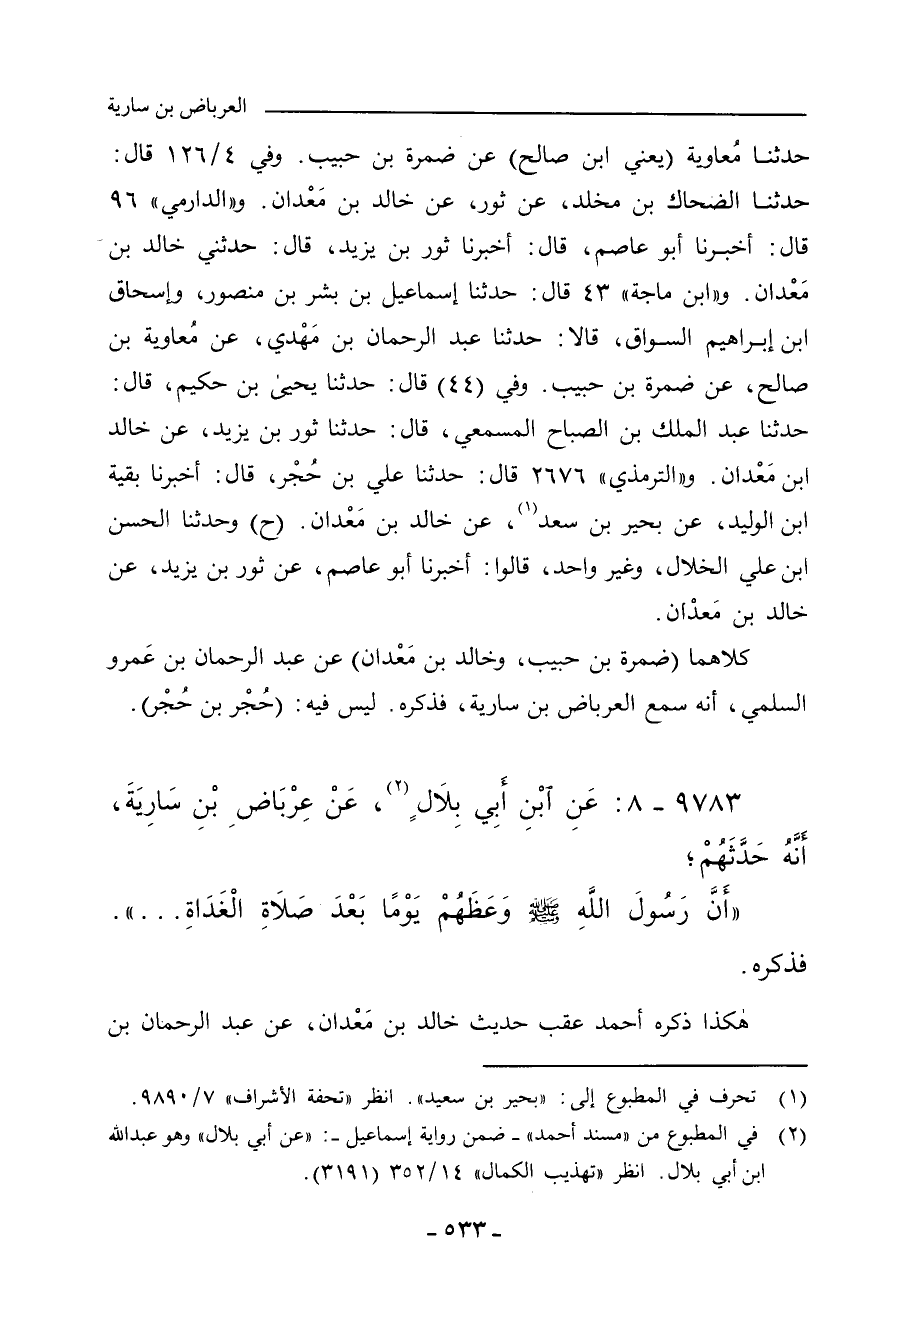 العرباض بن سارية
حدثنا مُعاوية (يعني ابن صالح) عن ضمرة بن حبيب. وفي ١٢٦/٤ قال:
حدثنا الضحاك بن مخلد، عن ثور، عن خالد بن مَعْدان. و«الدارمي» ٩٦
قال: أخبرنا أبو عاصم، قال: أخبرنا ثور بن يزيد، قال: حدثني خالد بن
مَعْدان. و«ابن ماجة» ٤٣ قال: حدثنا إسماعيل بن بشر بن منصور، وإسحاق
ابن إبراهيم السواق، قالا: حدثنا عبد الرحمان بن مَهْدي، عن مُعاوية بن
صالح، عن ضمرة بن حبيب. وفي (٤٤) قال: حدثنا يحيىٰ بن حكيم، قال:
حدثنا عبد الملك بن الصباح المسمعي، قال: حدثنا ثور بن يزيد، عن خالد
ابن مَعْدان. و«الترمذي» ٢٦٧٦ قال: حدثنا علي بن حُجْر، قال: أخبرنا بقية
ابن الوليد، عن بحير بن سعد(١)، عن خالد بن مَعْدان. (ح) وحدثنا الحسن
ابن علي الخلال، وغير واحد، قالوا: أخبرنا أبو عاصم، عن ثور بن يزيد، عن
خالد بن مَعدْان.
كلاهما (ضمرة بن حبيب، وخالد بن مَعْدان) عن عبد الرحمان بن عَمرو
السلمي، أنه سمع العرباض بن سارية، فذكره. ليس فيه: (حُجْر بن حُجْر).
٩٧٨٣ - ٨: عَنِ ٱبْنِ أَبِي بِلَالٍ(٢)، عَنْ عِرْبَاضِ بْنِ سَارِيَةَ،
أَنَّهُ حَدَّثَهُمْ؛
«أَنَّ رَسُولَ اللَّهِ ﷺ وَعَظَهُمْ يَوْمًا بَعْدَ صَلَاةِ الْغَدَاةِ...».
فذكره.
هٰكذا ذكره أحمد عقب حديث خالد بن مَعْدان، عن عبد الرحمان بن
(١) تحرف في المطبوع إلى: «بحير بن سعيد». انظر «تحفة الأشراف» ٩٨٩٠/٧.
(٢) في المطبوع من «مسند أحمد» - ضمن رواية إسماعيل -: «عن أبي بلال» وهو عبدالله
ابن أبي بلال. انظر «تهذيب الكمال» ٣٥٢/١٤ (٣١٩١).
- ٥٣٣ -